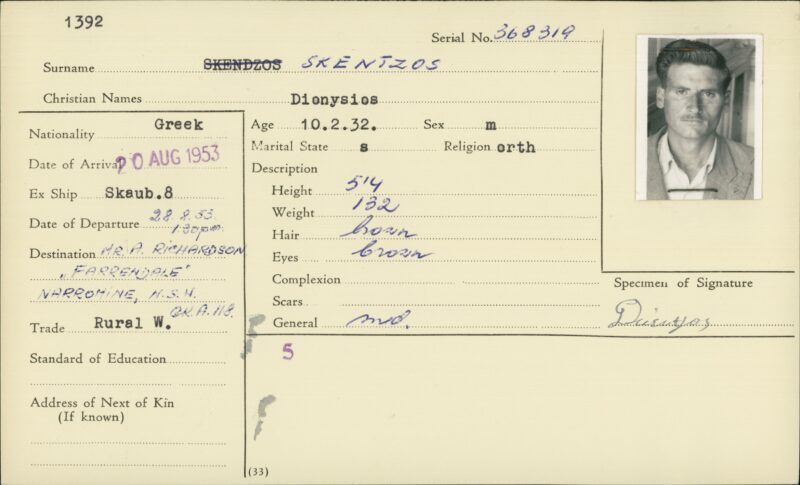 1392
Serial No. 368319
Surname SKENDZOS SKENTZOS
Christian Names Dionysios
Nationality Greek
Date of Arrival 20 AUG 1953
Ex Ship Skaub.8
Date of Departure 28.8.53.
1.30pm.
Destination MR. A. RICHARDSON
"FARRENDALE"
NARROMINE, N.S.W.
118.
Trade Rural W.
Standard of Education
Address of Next of Kin
(If known)
Age 10.2.32. Sex m
Marital State s Religion orth
Description
Height 5'4
Weight 132
Hair brown
Eyes brown
Complexion
Scars
General med.
5
(33)
Specimen of Signature